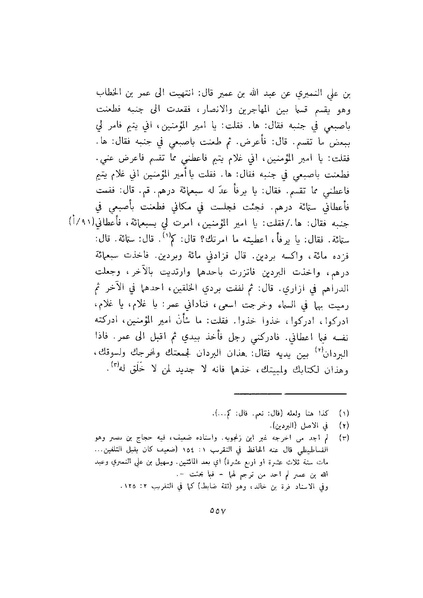 بن علي النميري عن عبد الله بن عمير قال: انتهيت الى عمر بن الخطاب
وهو يقسم قسما بين المهاجرين والانصار، فقعدت الى جنبه فطعنت
باصبعي في جنبه فقال: ها. فقلت: يا امير المؤمنين، اني يتيم فامر لي
ببعض ما تقسم. قال: فأعرض. ثم طعنت باصبعي في جنبه فقال: ها.
فقلت: يا امير المؤمنين، اني غلام يتيم فاعطني مما تقسم فاعرض عني.
فطعنت باصبعي في جنبه فقال: ها. فقلت يا أمير المؤمنين اني غلام يتيم
فاعطني مما تقسم. فقال: يا يرفأ عدّ له سبعمائة درهم. قم. قال: فقمت
فأعطاني ستمائة درهم. فجئت فجلست في مكاني فطعنت بأصبعي في
جنبه فقال: ها./فقلت: يا امير المؤمنين، امرت لي بسبعمائة، فأعطاني (٩١/أ)
ستمائة. فقال: يا يرفأ، اعطيته ما امرتك؟ قال: كم(١). قال: ستمائة. قال:
فزده مائة، واكسه بردين. قال: فزادني مائة وبردين. فاخذت سبعمائة
درهم، واخذت البردين فاتزرت باحدهما وارتديت بالآخر، وجعلت
الدراهم في ازاري. قال: ثم لففت بردي الخلقين، احدهما في الآخر ثم
رميت بهما في السماء وخرجت اسعى، فناداني عمر: يا غلام، يا غلام،
ادركوا، ادركوا، خذوا خذوا. فقلت: ما شأن امير المؤمنين، ادركته
نفسه فيما اعطاني. فادركني رجل فأخذ بيدي ثم اقبل الى عمر. فاذا
البردان(٢) بين يديه فقال: هذان البردان لجمعتك ولمخرجك ولسوقك،
وهذان لكتابك ولبيتك، خذهما فانه لا جديد لمن لا خَلَق له(٣).
(١) كذا هنا ولعله (قال: نعم. قال: كم...).
(٢) في الاصل (البردين).
(٣) لم اجد من اخرجه غير ابن زنجويه. واسناده ضعيف، فيه حجاج بن نصير وهو
الفساطيطي قال عنه الحافظ في التقريب ١: ١٥٤ (ضعيف كان يقبل التلقين...
مات سنة ثلاث عشرة او اربع عشرة) اي بعد المائتين. وسهيل بن علي النميري وعبد
الله بن عمير لم اجد من ترجم لهما - فيما بحثت -.
وفي الاسناد قرة بن خالد، وهو (ثقة ضابط) كما في التقريب ٢: ١٢٥.
٥٥٧